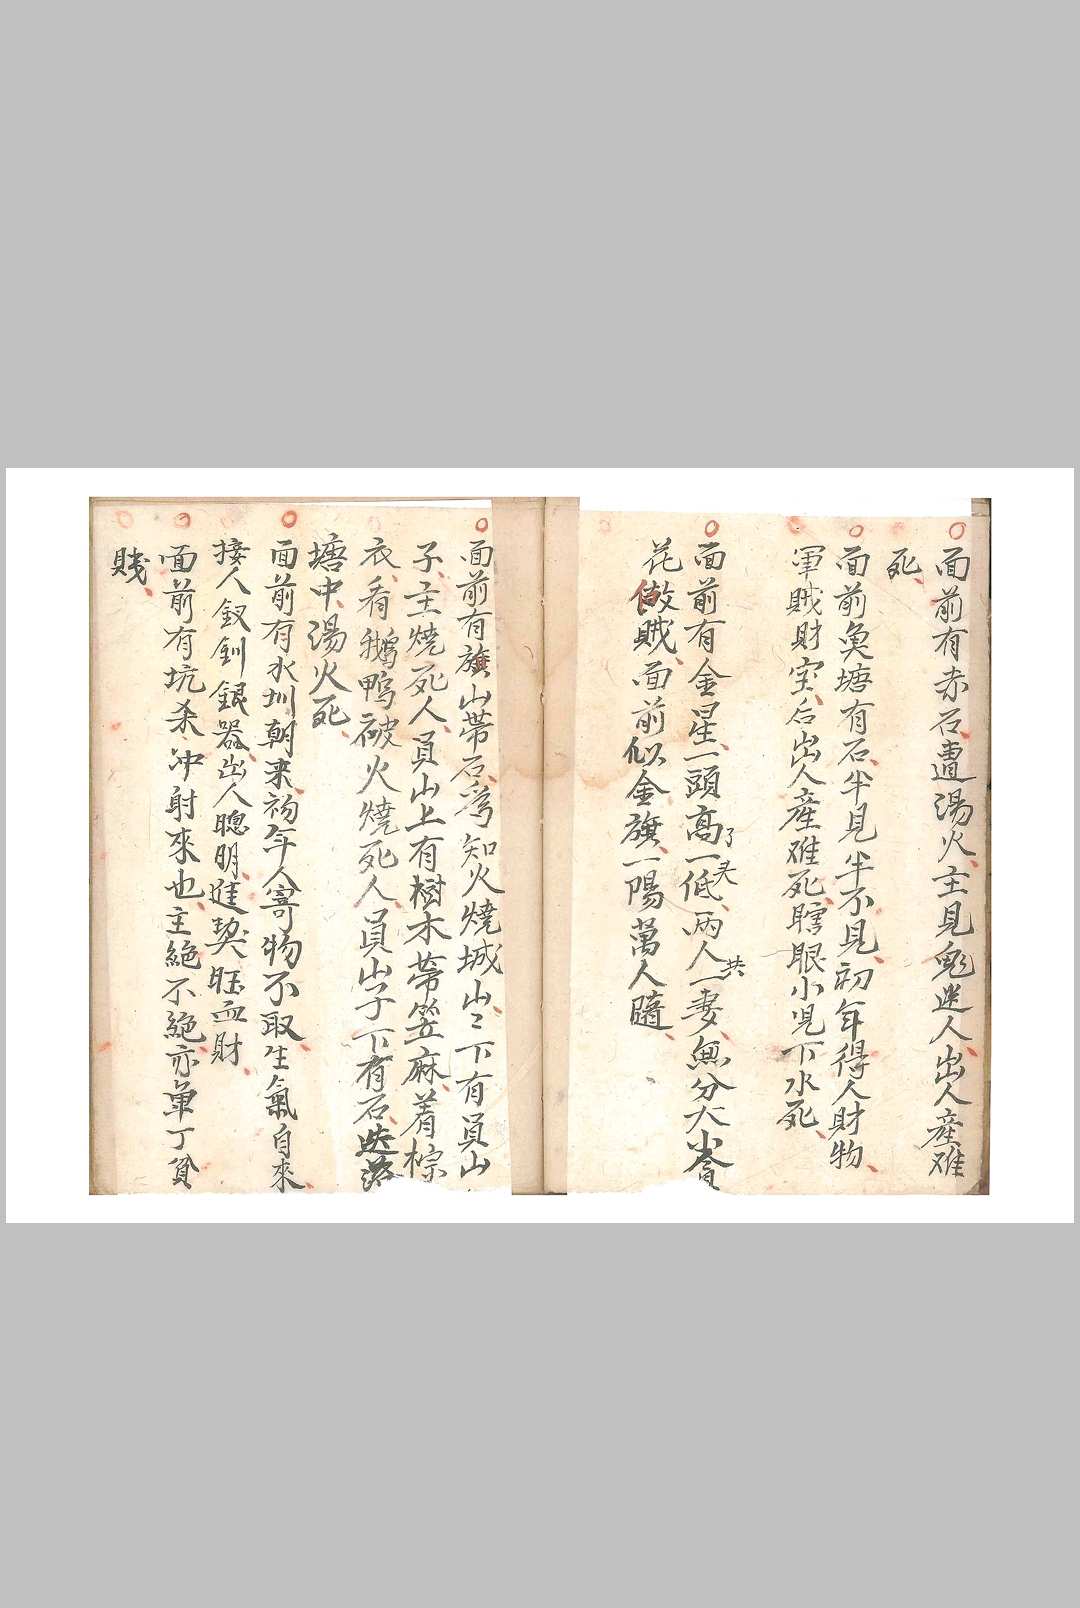 面前有赤石遭湯火主見鬼迷人出人產难
死
面前魚塘有石半見半不見初年得人財物
軍賊財宝后出人產难死瞎眼小児下水死
面前有金星一頭高了一低夭两人共一妻無分大小會
花做賊面前似金旗一陽萬人隨
面前有旗山带石為知火燒城山二下有員山
子主燒死人員山上有樹木带笠麻着棕
衣看鵝鴨破火燒死人員山子下有石迭落
塘中湯火死
面前有水圳朝来初年人寄物不取生氣自來
接人釵釧銀器出人聰明進契旺血財
面前有坑杀冲射來也主絕不絕亦单丁貧
賤